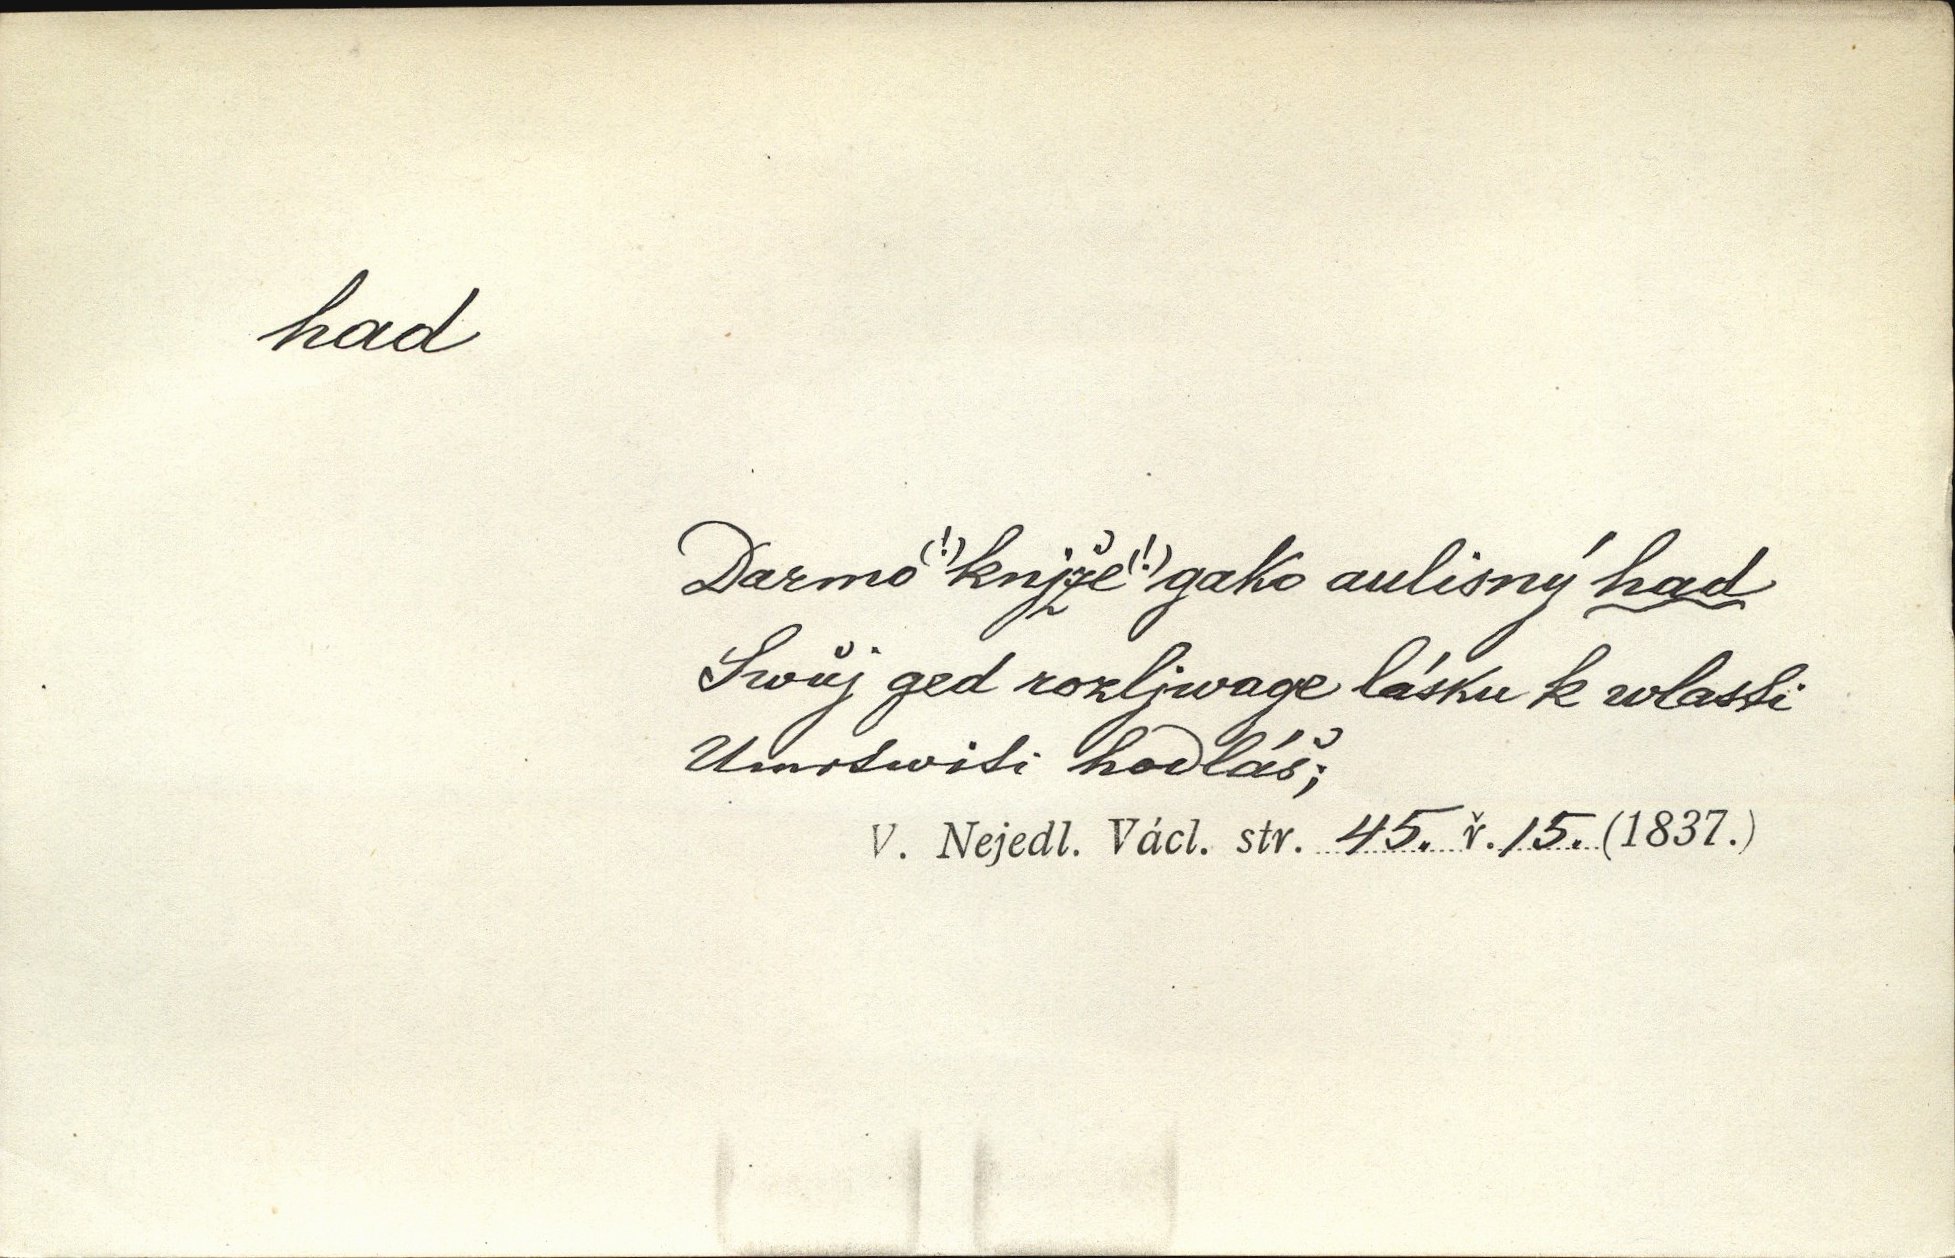 had
Darmo(!) knjže(!) gako aulisný had
Swůj ged rozljwage lásku k wlasti
Umrtwiti hodláš;
V. Nejedl. Václ. str. 45. ř. 15. (1837.)